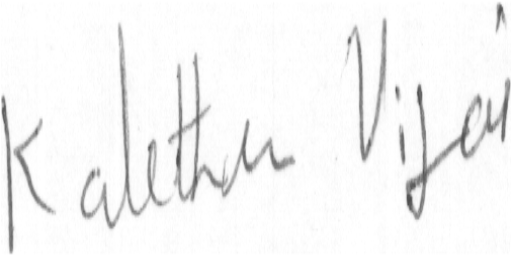 Kalethan Vijai